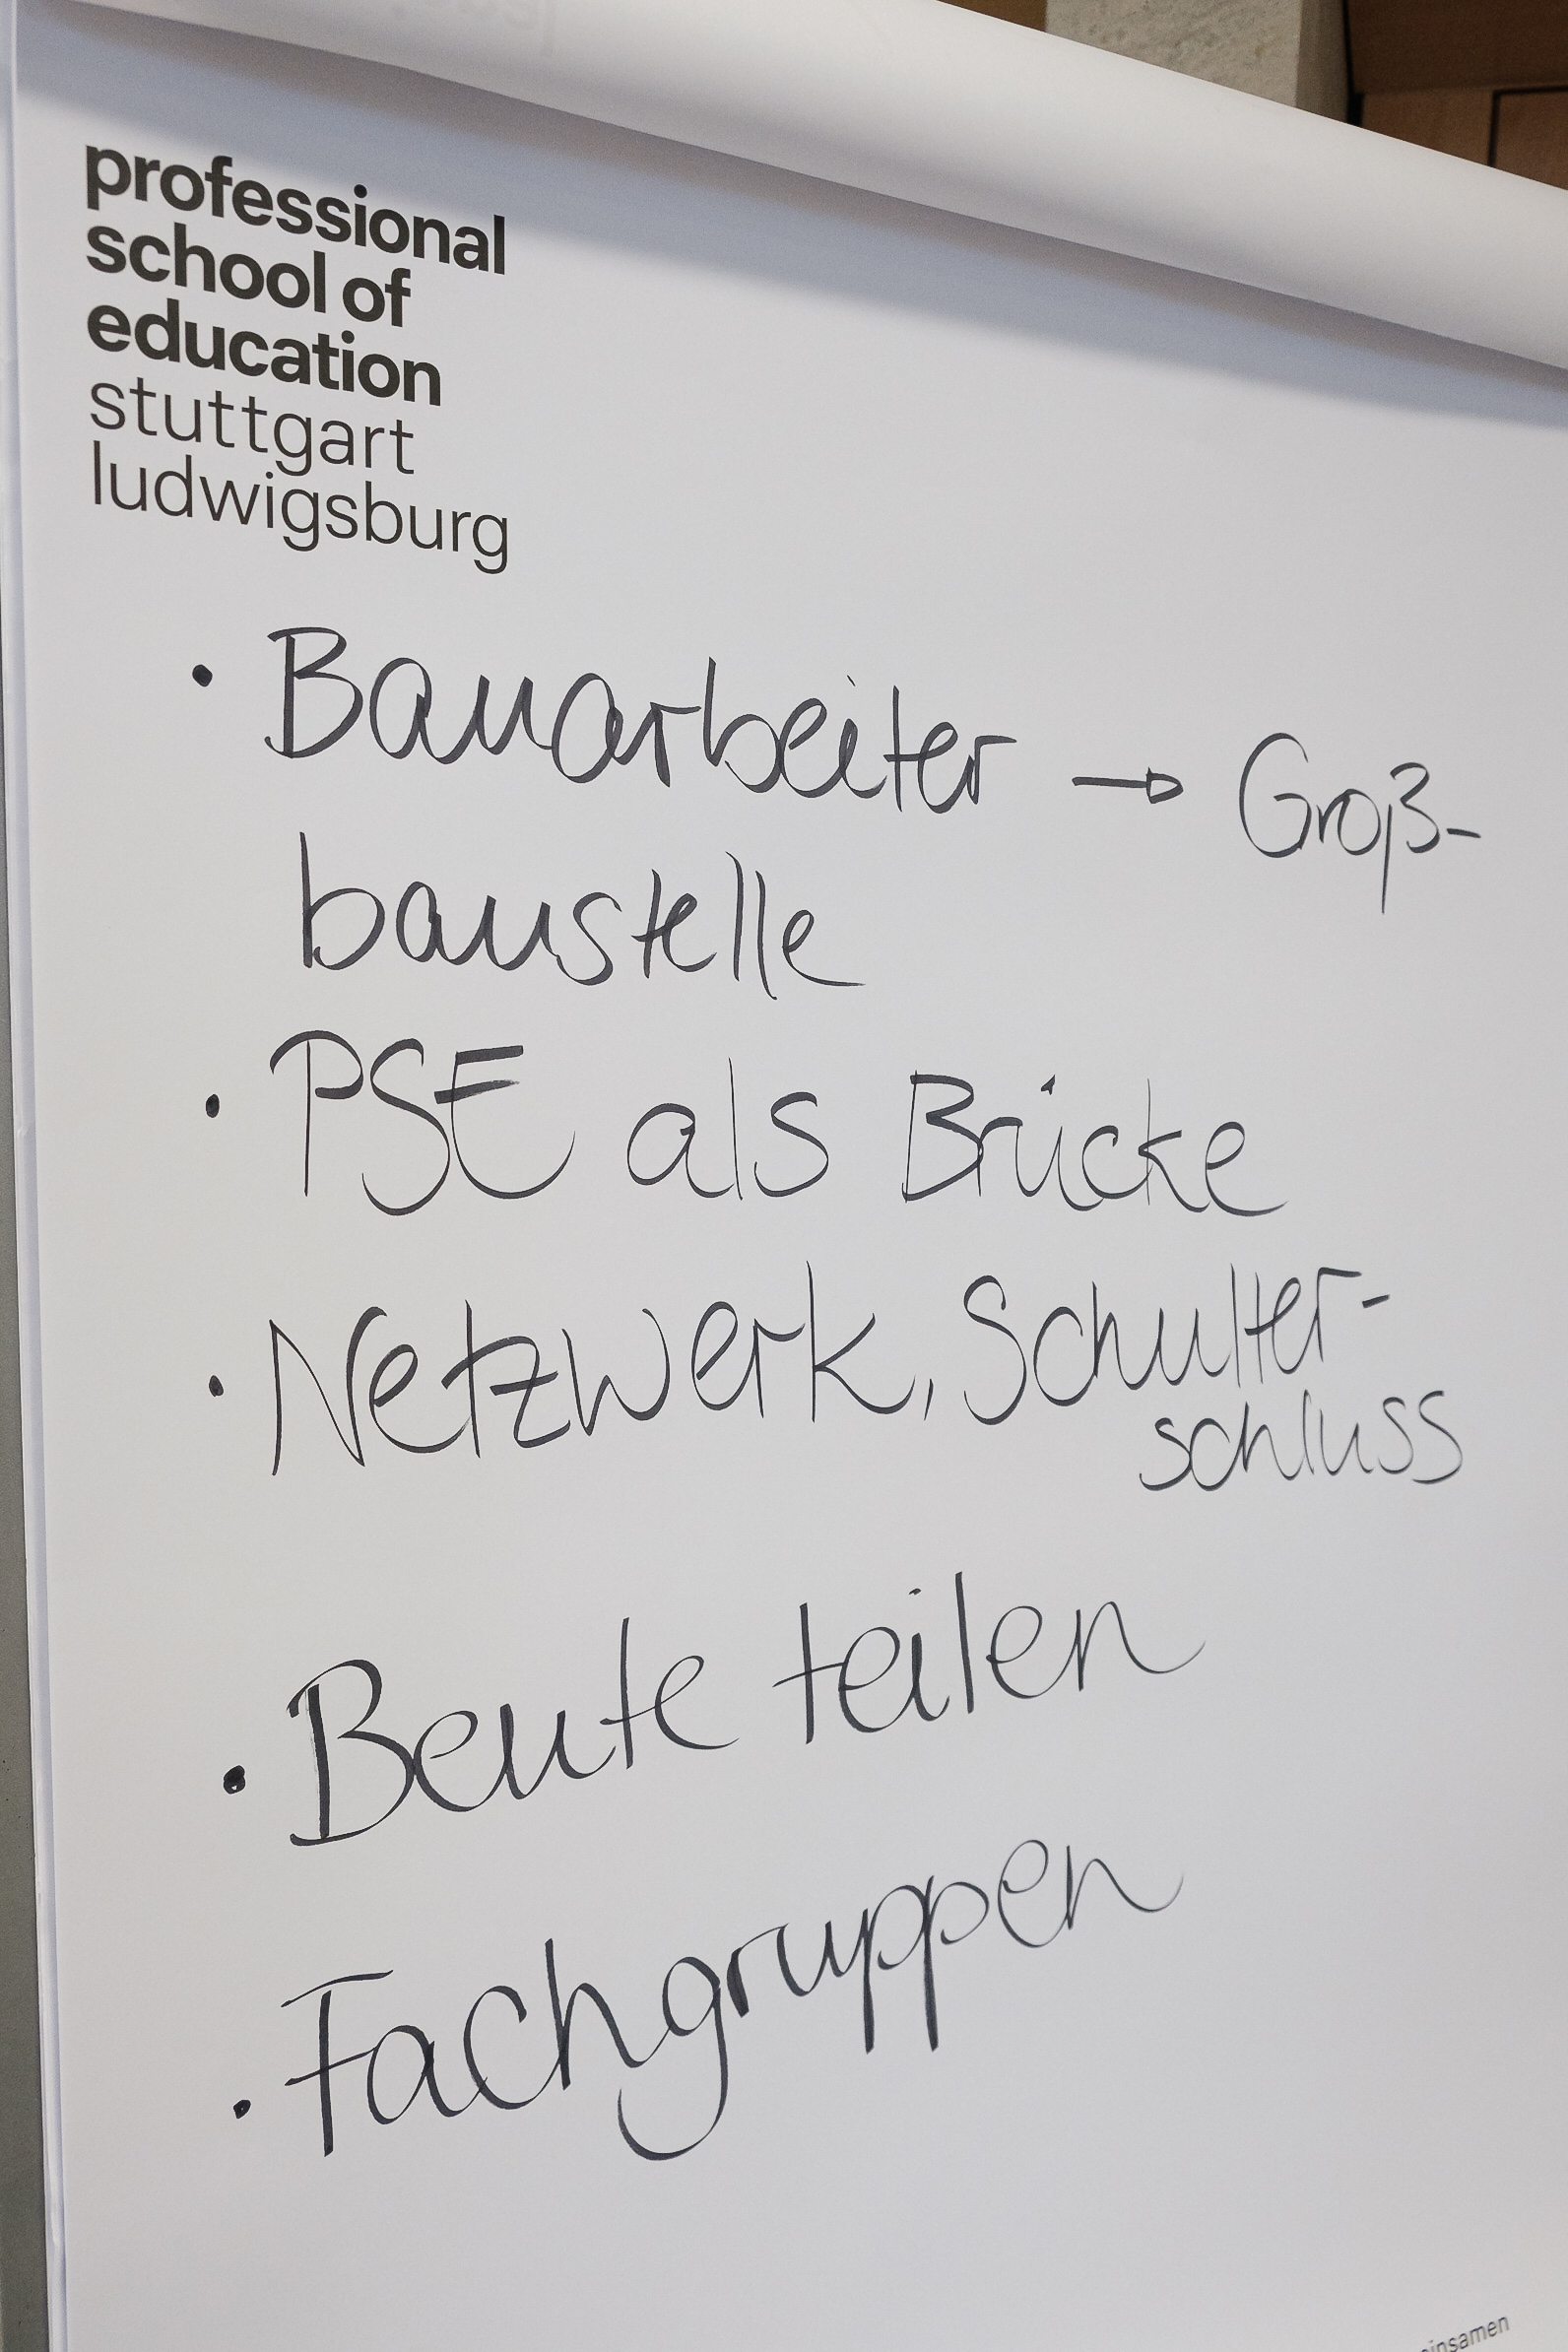 professional
school of
education
stuttgart
ludwigsburg
• Bauarbeiter → Groß-
baustelle
• PSE als Brücke
• Netzwerk, Schulter-
schluss
• Beute teilen
• Fachgruppen